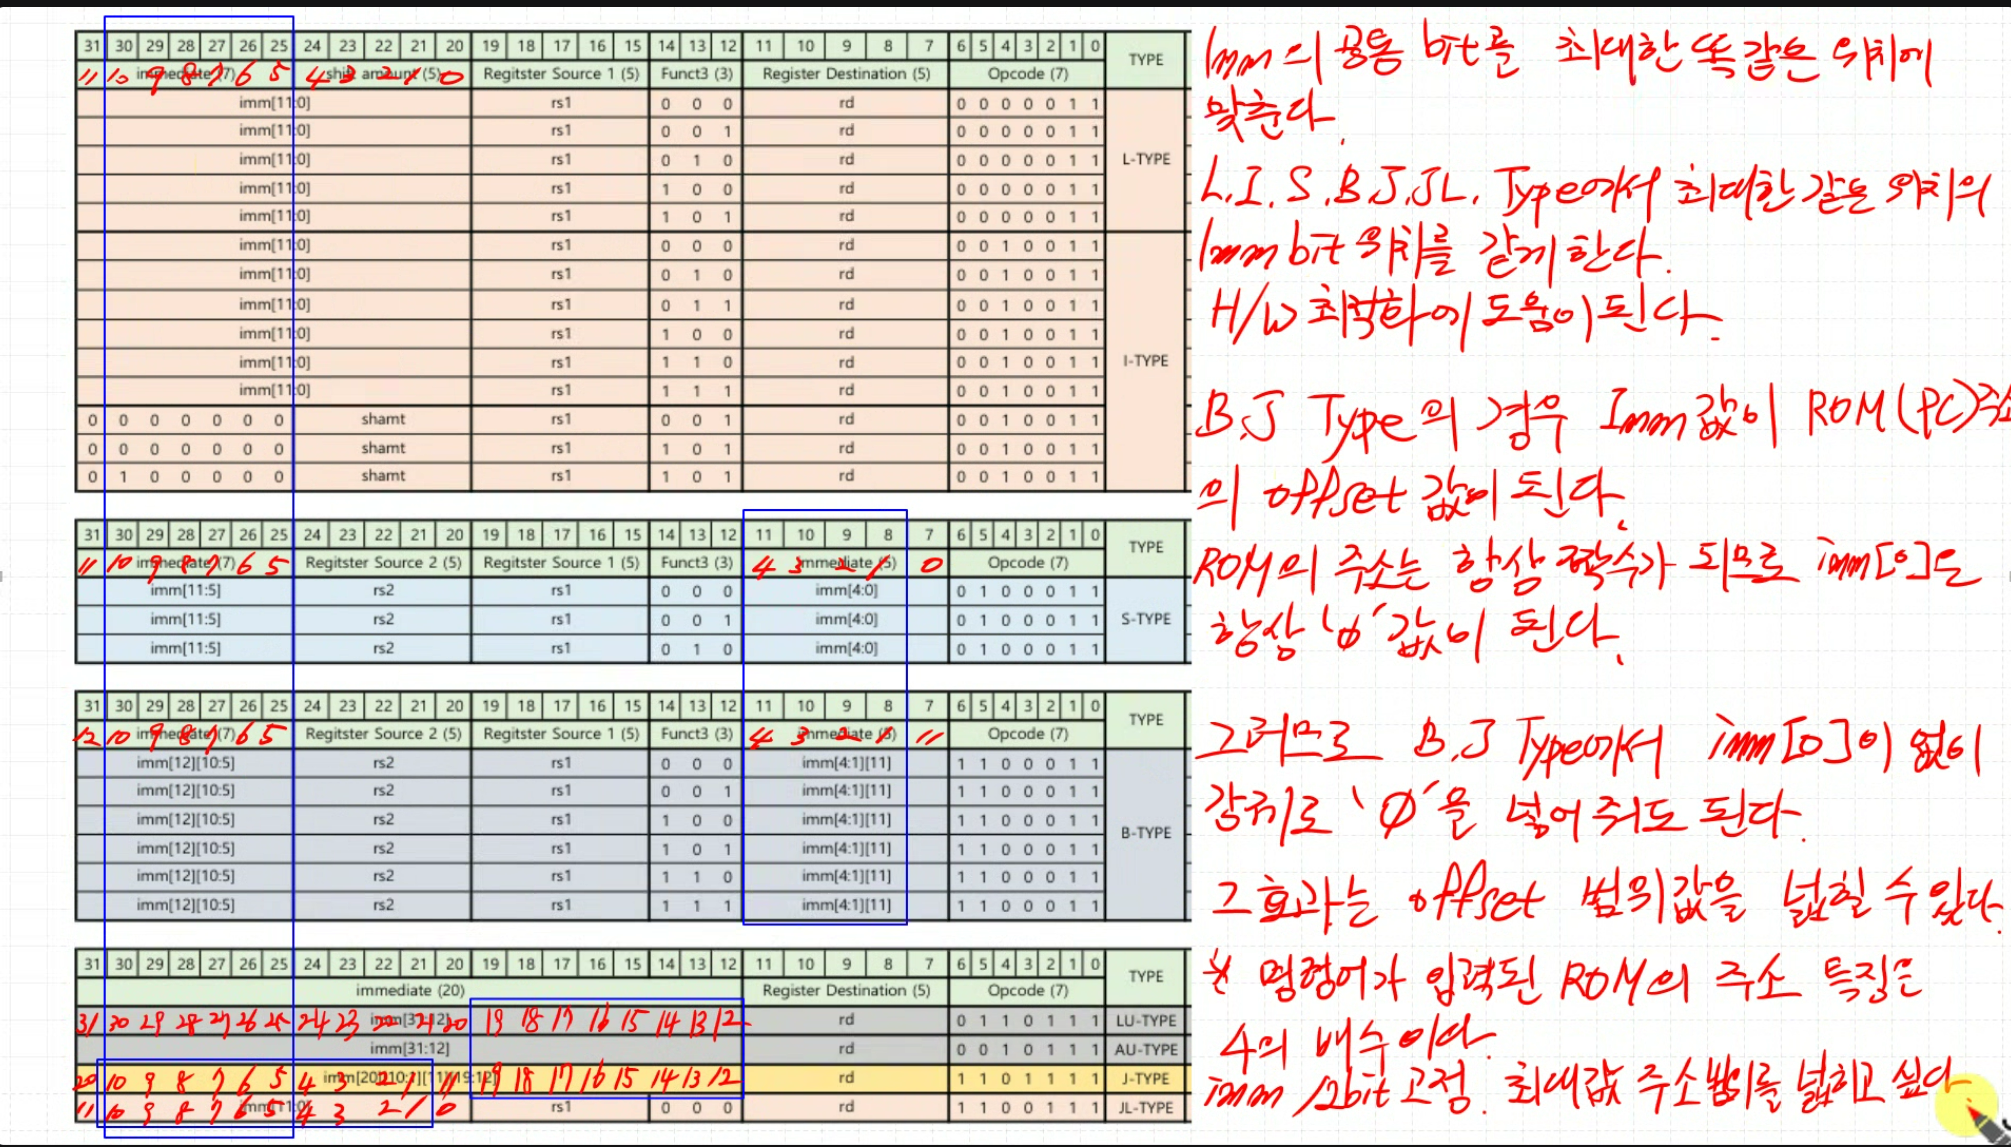 31 30 29 28 27 26 25 24 23 22 21 20 19 18 17 16 15 14 13 12 11 10 9 8 7 6 5 4 3 2 1 0 TYPE
immediate (7) shift amount (5) Regitster Source 1 (5) Funct3 (3) Register Destination (5) Opcode (7)
11 10 9 8 7 6 5 4 3 2 1 0
imm[11:0] rs1 0 0 0 rd 0 0 0 0 0 1 1
imm[11:0] rs1 0 0 1 rd 0 0 0 0 0 1 1
imm[11:0] rs1 0 1 0 rd 0 0 0 0 0 1 1 L-TYPE
imm[11:0] rs1 1 0 0 rd 0 0 0 0 0 1 1
imm[11:0] rs1 1 0 1 rd 0 0 0 0 0 1 1
imm[11:0] rs1 0 0 0 rd 0 0 1 0 0 1 1
imm[11:0] rs1 0 1 0 rd 0 0 1 0 0 1 1
imm[11:0] rs1 0 1 1 rd 0 0 1 0 0 1 1
imm[11:0] rs1 1 0 0 rd 0 0 1 0 0 1 1
imm[11:0] rs1 1 1 0 rd 0 0 1 0 0 1 1 I-TYPE
imm[11:0] rs1 1 1 1 rd 0 0 1 0 0 1 1
0 0 0 0 0 0 0 shamt rs1 0 0 1 rd 0 0 1 0 0 1 1
0 0 0 0 0 0 0 shamt rs1 1 0 1 rd 0 0 1 0 0 1 1
0 1 0 0 0 0 0 shamt rs1 1 0 1 rd 0 0 1 0 0 1 1
31 30 29 28 27 26 25 24 23 22 21 20 19 18 17 16 15 14 13 12 11 10 9 8 7 6 5 4 3 2 1 0 TYPE
immediate (7) Regitster Source 2 (5) Regitster Source 1 (5) Funct3 (3) immediate (5) Opcode (7)
11 10 9 8 7 6 5 4 3 2 1 0
imm[11:5] rs2 rs1 0 0 0 imm[4:0] 0 1 0 0 0 1 1
imm[11:5] rs2 rs1 0 0 1 imm[4:0] 0 1 0 0 0 1 1 S-TYPE
imm[11:5] rs2 rs1 0 1 0 imm[4:0] 0 1 0 0 0 1 1
31 30 29 28 27 26 25 24 23 22 21 20 19 18 17 16 15 14 13 12 11 10 9 8 7 6 5 4 3 2 1 0 TYPE
immediate (7) Regitster Source 2 (5) Regitster Source 1 (5) Funct3 (3) immediate (5) Opcode (7)
12 10 9 8 7 6 5 4 3 2 1 11
imm[12][10:5] rs2 rs1 0 0 0 imm[4:1][11] 1 1 0 0 0 1 1
imm[12][10:5] rs2 rs1 0 0 1 imm[4:1][11] 1 1 0 0 0 1 1
imm[12][10:5] rs2 rs1 1 0 0 imm[4:1][11] 1 1 0 0 0 1 1 B-TYPE
imm[12][10:5] rs2 rs1 1 0 1 imm[4:1][11] 1 1 0 0 0 1 1
imm[12][10:5] rs2 rs1 1 1 0 imm[4:1][11] 1 1 0 0 0 1 1
imm[12][10:5] rs2 rs1 1 1 1 imm[4:1][11] 1 1 0 0 0 1 1
31 30 29 28 27 26 25 24 23 22 21 20 19 18 17 16 15 14 13 12 11 10 9 8 7 6 5 4 3 2 1 0 TYPE
immediate (20) Register Destination (5) Opcode (7)
imm[31:12] rd 0 1 1 0 1 1 1 LU-TYPE
31 30 29 28 27 26 25 24 23 22 21 20 19 18 17 16 15 14 13 12
imm[31:12] rd 0 0 1 0 1 1 1 AU-TYPE
imm[20][10:1][11][19:12] rd 1 1 0 1 1 1 1 J-TYPE
20 10 9 8 7 6 5 4 3 2 1 11 19 18 17 16 15 14 13 12
imm[11:0] rs1 0 0 0 rd 1 1 0 0 1 1 1 JL-TYPE
11 10 9 8 7 6 5 4 3 2 1 0
Imm의 공통 bit를 최대한 똑같은 위치에
맞춘다.
L.I.S.B.J.JL. Type에서 최대한 같은 위치의
Imm bit 위치를 같게 한다.
H/W 최적화에 도움이 된다.
B.J Type의 경우 Imm값이 ROM(PC)주소
의 offset 값이 된다.
ROM의 주소는 항상 짝수가 되므로 imm[0]은
항상 '0' 값이 된다.
그러므로 B.J Type에서 imm[0]이 없이
강제로 '0'을 넣어 줘도 된다.
그 효과는 offset 범위값을 넓힐 수 있다.
* 명령어가 입력된 ROM의 주소 특징은
4의 배수이다.
imm 12bit 고정. 최대값 주소범위를 넓히고 싶다.